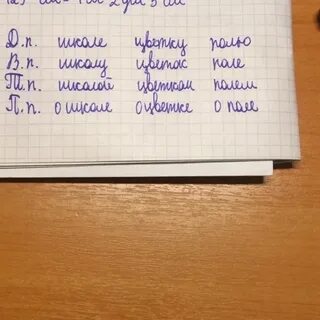 Д.п. школе цветку полю
В.п. школу цветок поле
Т.п. школой цветком полем
П.п. о школе о цветке о поле